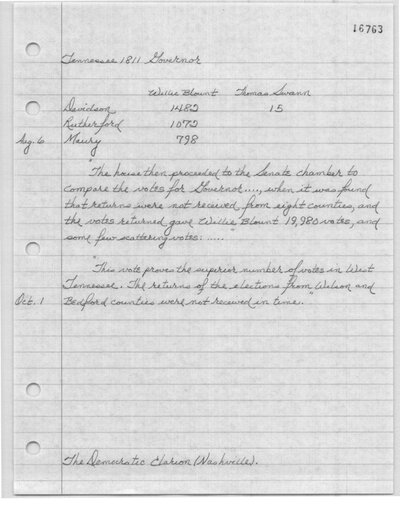 16763
Tennessee 1811 Governor
Willie Blount Thomas Swann
Davidson 1482 15
Rutherford 1072
Aug. 6 Maury 798
"The house then proceeded to the Senate chamber to
compare the votes for Governor...., when it was found
that returns were not received, from eight counties, and
the votes returned gave Willie Blount 19,980 votes, and
some few scattering votes: ....."
"This vote proves the superior number of votes in West
Tennessee. The returns of the elections from Wilson and
Oct. 1 Bedford counties were not received in time."
The Democratic Clarion (Nashville).